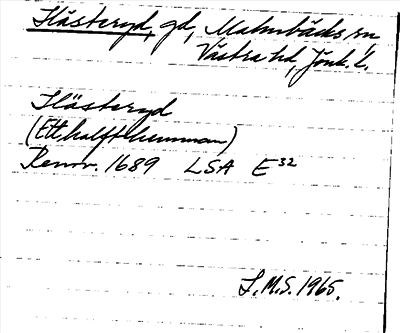 Hästeryd, gd, Malmbäcks sn,
Västra hd, Jönk. l.
Hästeryd
(Ett halft hemman)
Renov. 1689 LSA E³²
L.M.S. 1965.